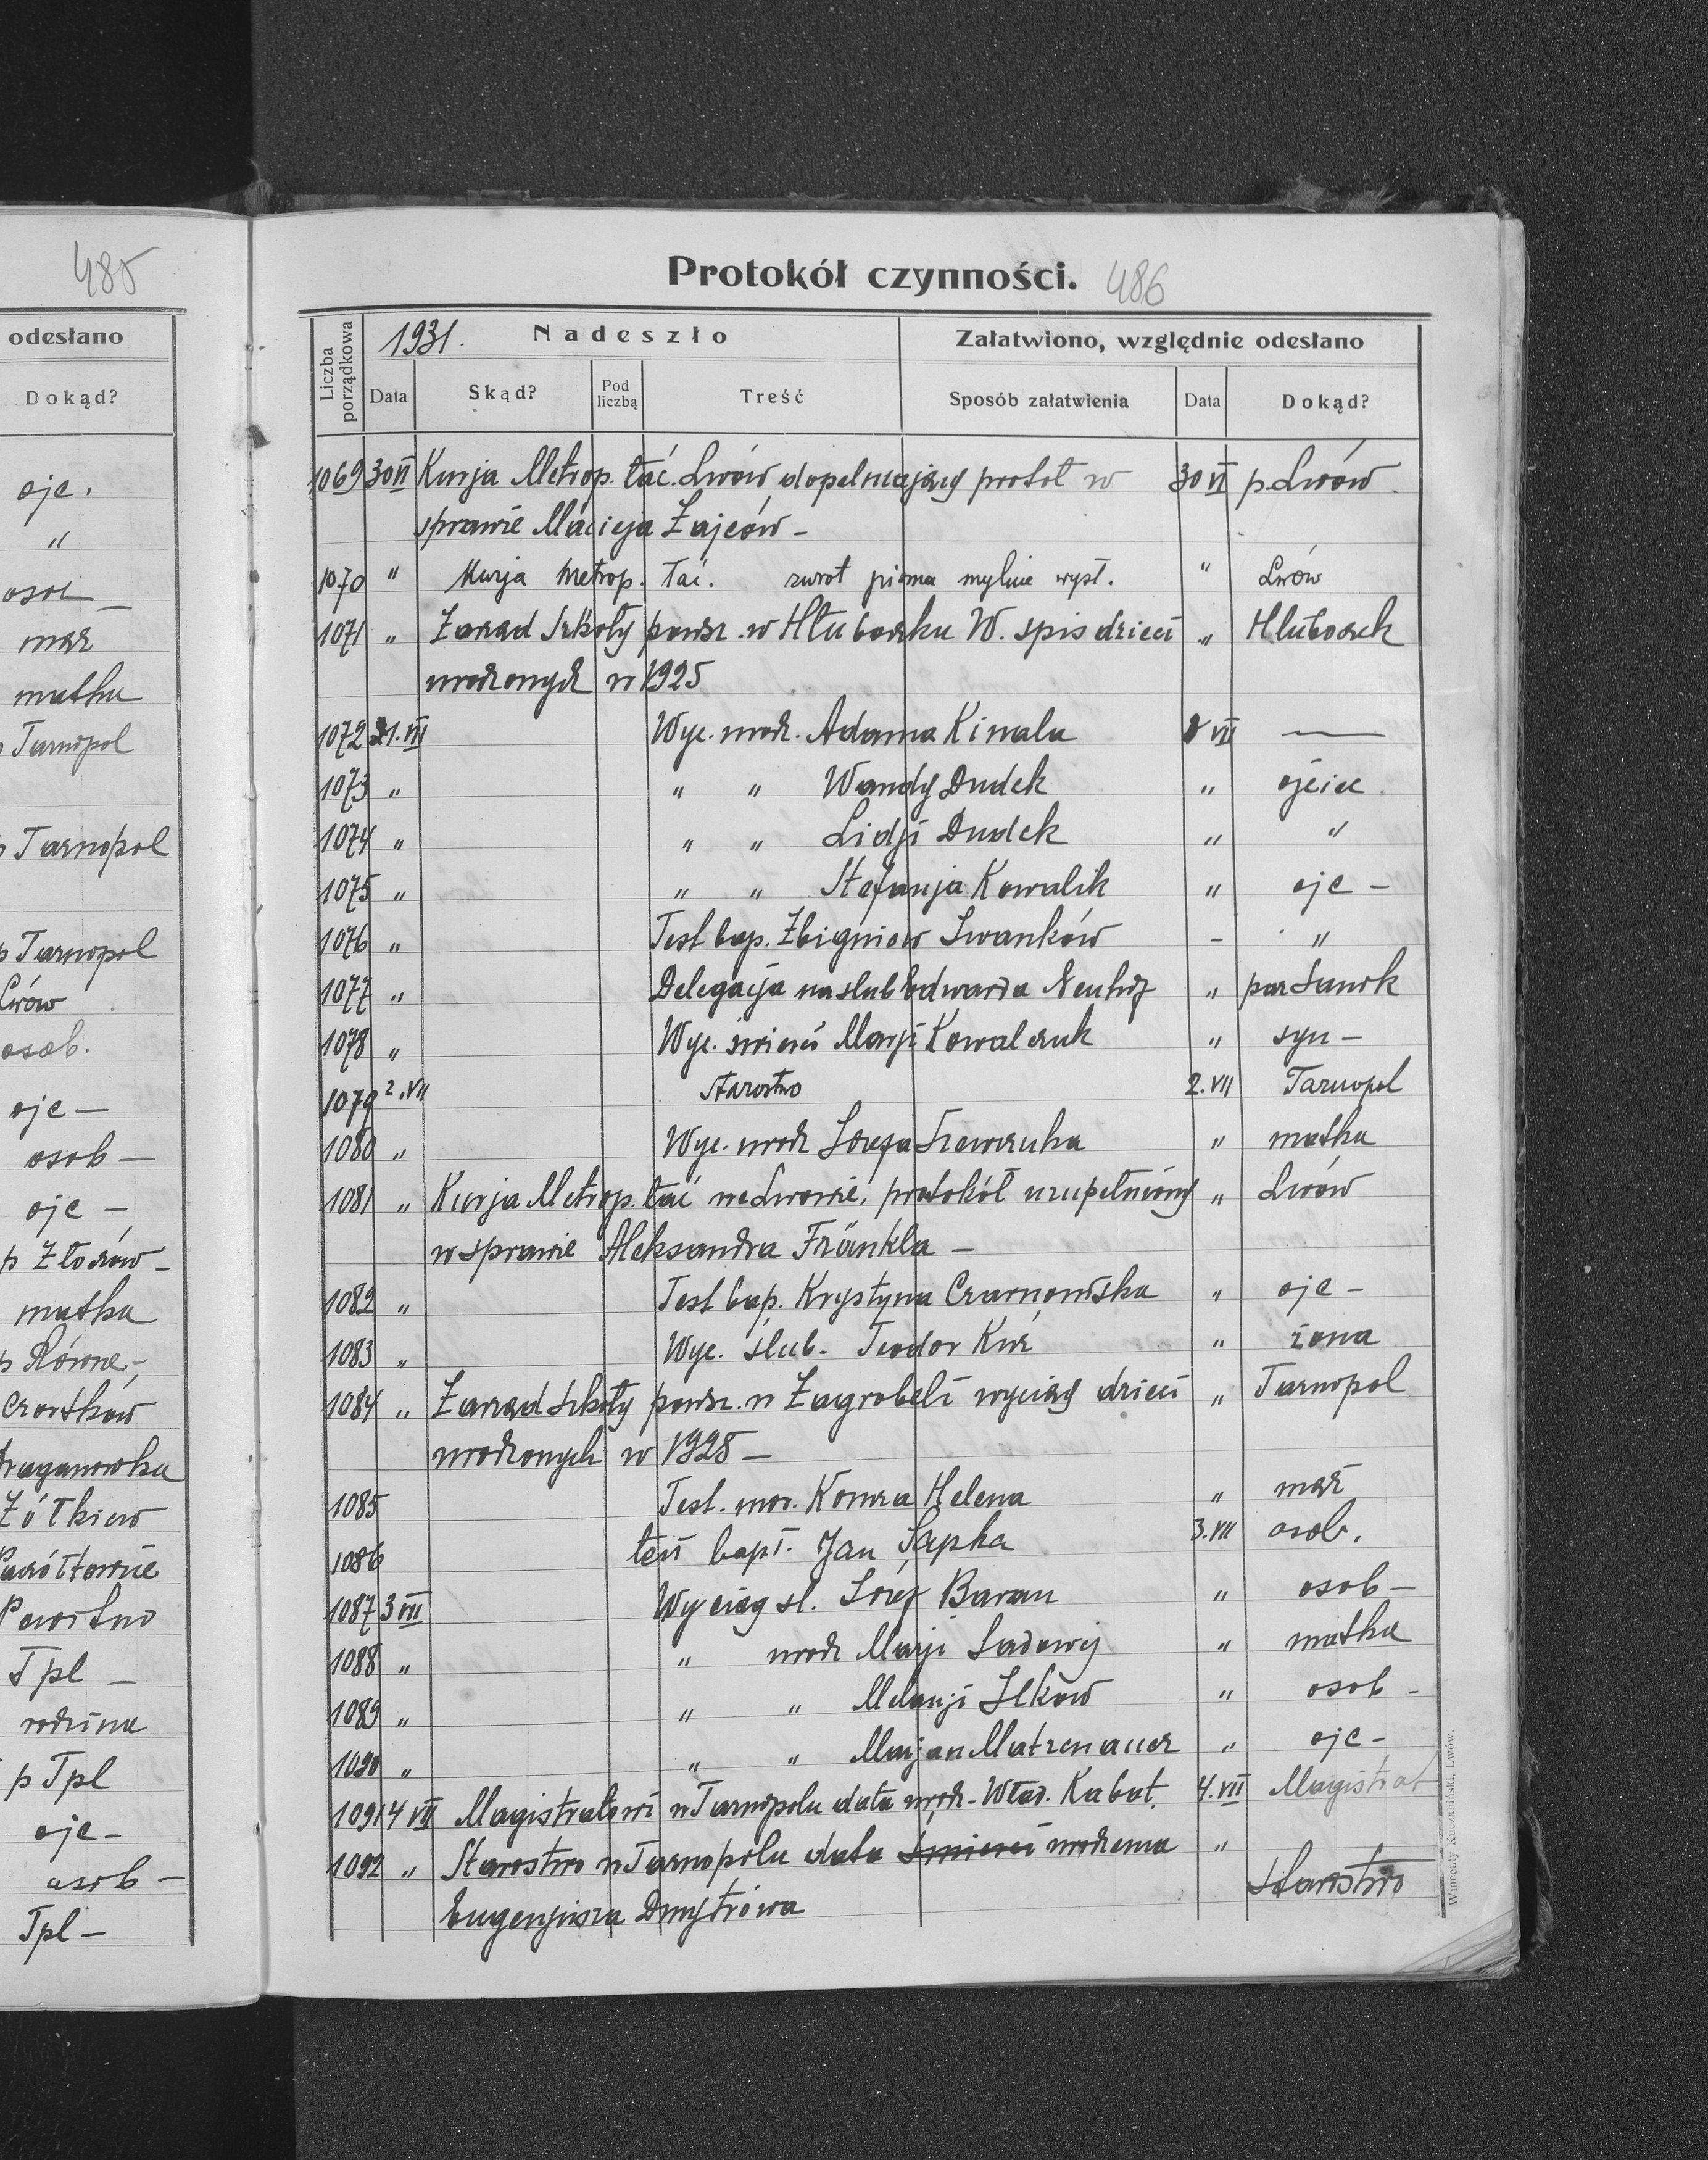 485
odesłano
Dokąd?
ojc.
"
osob –
mąż
matka
p Tarnopol
p Tarnopol
p Tarnopol
Lwów
osob.
ojc –
osob –
ojc –
p Złoczów –
matka
p Równe –
Czortków
Draganowka
Żółkiew
Powostwo
Tpl –
rodzina
p Tpl
ojc –
osob –
Tpl –
Protokół czynności. 486
Liczba porządkowa
1931. Nadeszło
Załatwiono, względnie odesłano
Data Skąd? Pod liczbą Treść Sposób załatwienia Data Dokąd?
1069 30 VI Kurja Metrop. łać. Lwów dopełniający protoł w 30 VI p. Lwów.
sprawie Macieja Zajców –
1070 " Kurja Metrop. łać. zwrot pisma mylnie wysł. " Lwów
1071 " Zarząd Szkoły powsz. w Hłuboczku W. spis dzieci " Hluboczek
urodzonych w 1925
1072 1. VII Wyc. urodz. Adama Kinala VII —
1073 " " " Wandy Dudek " ojciec.
1074 " " " Lidji Dudek " "
1075 " " " Stefanja Kowalik " ojc –
1076 " Test bap. Zbigniew Iwanków – "
1077 " Delegacja na slub Edwarda " par Sanok
1078 " Wyc. śmierci Marji Kowalczuk " syn –
1079 2. VII Starostwo 2. VII Tarnopol
1080 " Wyc. urodz Józefa Szewczuka " matka
1081 " Kurja Metrop. łać we Lwowie, protokół uzupełniony " Lwów
w sprawie Aleksandra Fränkla –
1082 " Test bap. Krystyna Czarnowska " ojc –
1083 " Wyc. ślub. Teodor Kuź " żona
1084 " Zarząd szkoły powsz. w Zagrobeli wyciąg dzieci " Tarnopol
urodzonych w 1925 –
1085 Test. mor. Komza Helena " mąż
1086 test bapt. Jan Sapka 3. VII osob.
1087 3 VII Wyciąg sl. Józef Baran " osob –
1088 " " urodz Marji Sadowij " matka
1089 " " " Melanji Ilków " osob –
1090 " " " Marjan Matzenauer " ojc –
1091 4 VII Magistratowi w Tarnopolu data urodz. Wład. Kabat. 4. VII Magistrat
1092 " Starostwo w Tarnopolu data śmierci urodzenia "
Starostwo
Eugenjusza Dmytrówa
Wincenty Kuczabiński, Lwów.